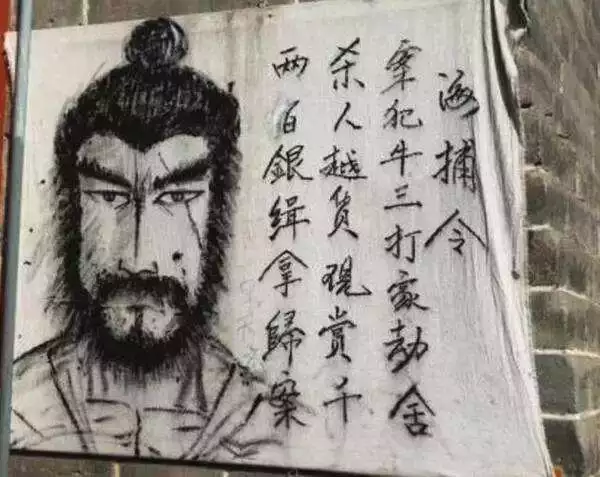 海捕令
罪犯牛三打家劫舍
杀人越货现赏千
两百銀缉拿歸案